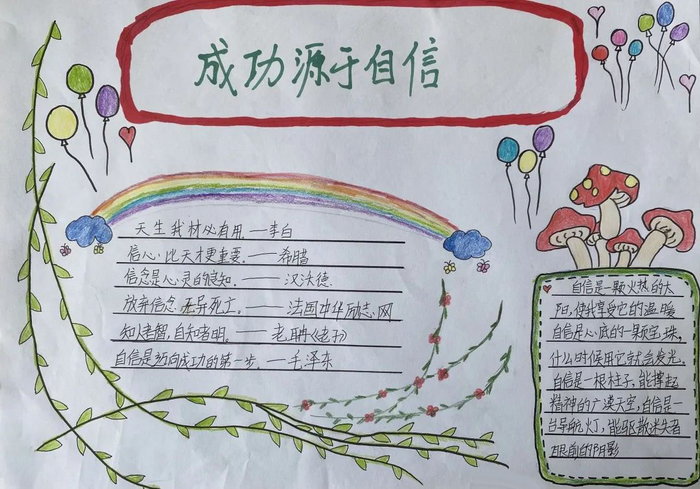 成功源于自信
天生我材必有用——李白
信心比天才更重要.——希腊
信念是心灵的良知.——汉沃德
放弃信念,无异死亡.——法国中华励志网
知人者智,自知者明.——老聃《老子》
自信是迈向成功的第一步.——毛泽东
自信是一颗火热的太
阳,使你享受它的温暖
自信是心底的一颗宝珠,
什么时候用它就会发光.
自信是一根柱子,能撑起
精神的广漠天空,自信是一
台导航灯,能驱散迷失者
眼前的阴影